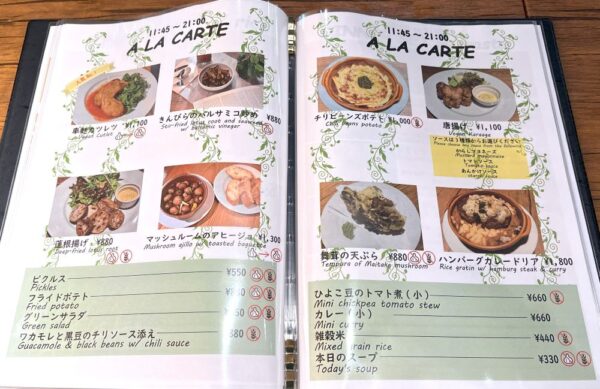 11:45～21:00
A LA CARTE
車麩カツレツ ¥1,100
Vegan Cutlet
きんぴらのバルサミコ炒め ¥880
Stir-fried lotus root and seaweed
w/ balsamic vinegar
蓮根揚げ ¥880
Deep-fried lotus root
マッシュルームのアヒージョ ¥1,300
Mushroom ajillo w/ toasted baguette
ピクルス ¥550
Pickles
フライドポテト
Fried potato
グリーンサラダ
Green salad
ワカモレと黒豆のチリソース添え
Guacamole & black beans w/ chili sauce
11:45～21:00
A LA CARTE
チリビーンズポテト ¥1,000
Chili beans potato
唐揚げ ¥1,100
Vegan Karaage
ソースは3種類からお選びください
Please choose one sauce from the following
からしマヨネーズ
Mustard mayonnaise
トマトソース
Tomato sauce
あんかけソース
starchy sauce
舞茸の天ぷら ¥880
Tempura of Maitake mushroom
ハンバーグカレードリア ¥1,800
Rice gratin w/ hamburg steak & curry
ひよこ豆のトマト煮(小) ¥660
Mini chickpea tomato stew
カレー(小) ¥660
Mini curry
雑穀米 ¥440
Mixed grain rice
本日のスープ ¥330
Today's soup